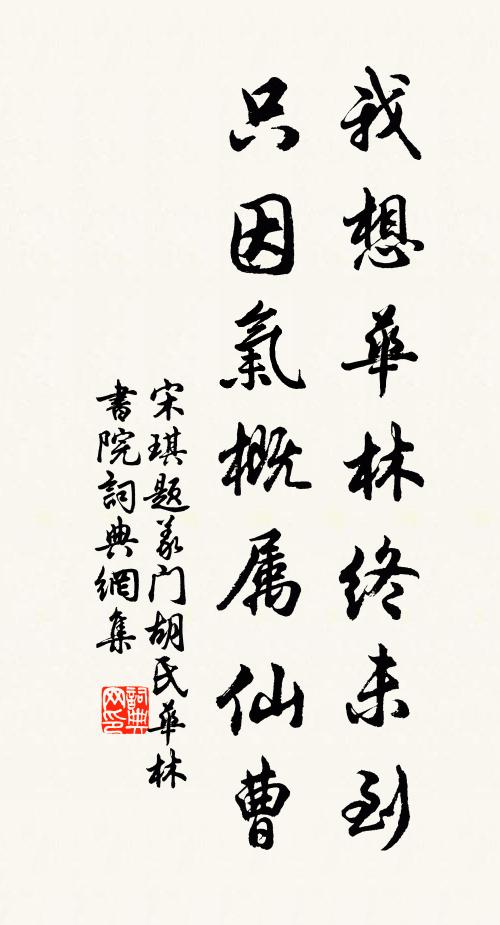 我想華林終未到
只因氣概属仙曹
宋琪题義门胡氏華林
書院詞典網集
詞典网印